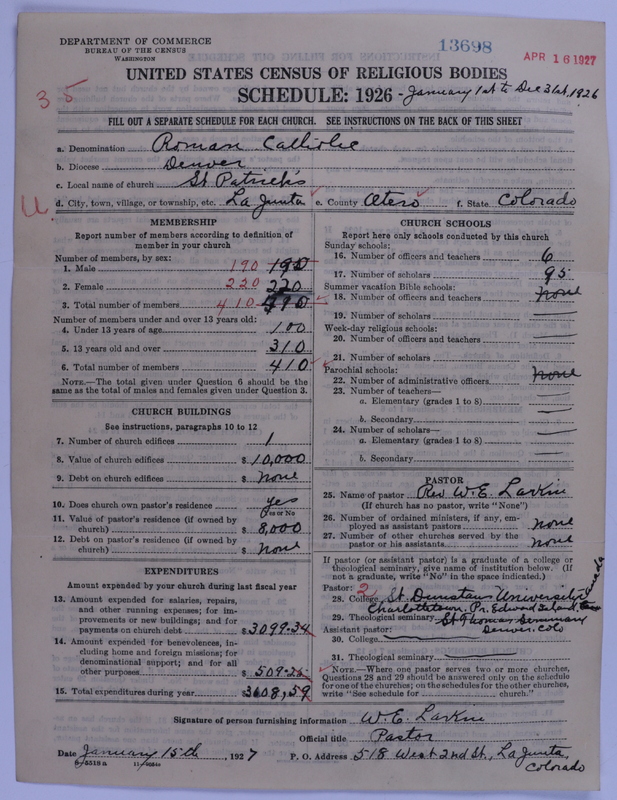 DEPARTMENT OF COMMERCE
BUREAU OF THE CENSUS
WASHINGTON
13698
APR 16 1927
UNITED STATES CENSUS OF RELIGIOUS BODIES
SCHEDULE: 1926 - January 1st to Dec 31st, 1926
35
FILL OUT A SEPARATE SCHEDULE FOR EACH CHURCH. SEE INSTRUCTIONS ON THE BACK OF THIS SHEET
a. Denomination Roman Catholic
b. Diocese Denver
c. Local name of church St Patrick's
d. City, town, village, or township, etc. La Junta e. County Otero f. State Colorado
MEMBERSHIP
Report number of members according to definition of
member in your church
Number of members, by sex:
1. Male 190 190
2. Female 220 220
3. Total number of members 410
Number of members under and over 13 years old:
4. Under 13 years of age 100
5. 13 years old and over 310
6. Total number of members 410
NOTE.—The total given under Question 6 should be the
same as the total of males and females given under Question 3.
CHURCH BUILDINGS
See instructions, paragraphs 10 to 12
7. Number of church edifices 1
8. Value of church edifices $ 10,000
9. Debt on church edifices $ none
10. Does church own pastor's residence yes
Yes or No
11. Value of pastor's residence (if owned by
church) $ 8,000
12. Debt on pastor's residence (if owned by
church) $ none
EXPENDITURES
Amount expended by your church during last fiscal year
13. Amount expended for salaries, repairs,
and other running expenses; for im-
provements or new buildings; and for
payments on church debt $ 3099.34
14. Amount expended for benevolences, in-
cluding home and foreign missions; for
denominational support; and for all
other purposes $ 509.25
15. Total expenditures during year $ 3608,59
CHURCH SCHOOLS
Report here only schools conducted by this church
Sunday schools:
16. Number of officers and teachers 6
17. Number of scholars 95
Summer vacation Bible schools:
18. Number of officers and teachers none
19. Number of scholars
Week-day religious schools:
20. Number of officers and teachers
21. Number of scholars
Parochial schools:
22. Number of administrative officers none
23. Number of teachers—
a. Elementary (grades 1 to 8)
b. Secondary
24. Number of scholars—
a. Elementary (grades 1 to 8)
b. Secondary
PASTOR
25. Name of pastor Rev W.E. Larkin
(If church has no pastor, write "None")
26. Number of ordained ministers, if any, em-
ployed as assistant pastors none
27. Number of other churches served by the
pastor or his assistants none
If pastor (or assistant pastor) is a graduate of a college or
theological seminary, give name of institution below. (If
not a graduate, write "No" in the space indicated.)
Pastor: 2
28. College St Dunstans University
Charlottetown, Pr. Edward Island Canada
29. Theological seminary St Thomas Seminary
Assistant pastor: Denver. Colo
30. College
31. Theological seminary
NOTE.—Where one pastor serves two or more churches,
Questions 28 and 29 should be answered only on the schedule
for one of the churches; on the schedules for the other churches,
write "See schedule for church."
Signature of person furnishing information W.E. Larkin
Official title Pastor
Date January 15th, 1927 P. O. Address 518 West 2nd St., La Junta,
Colorado